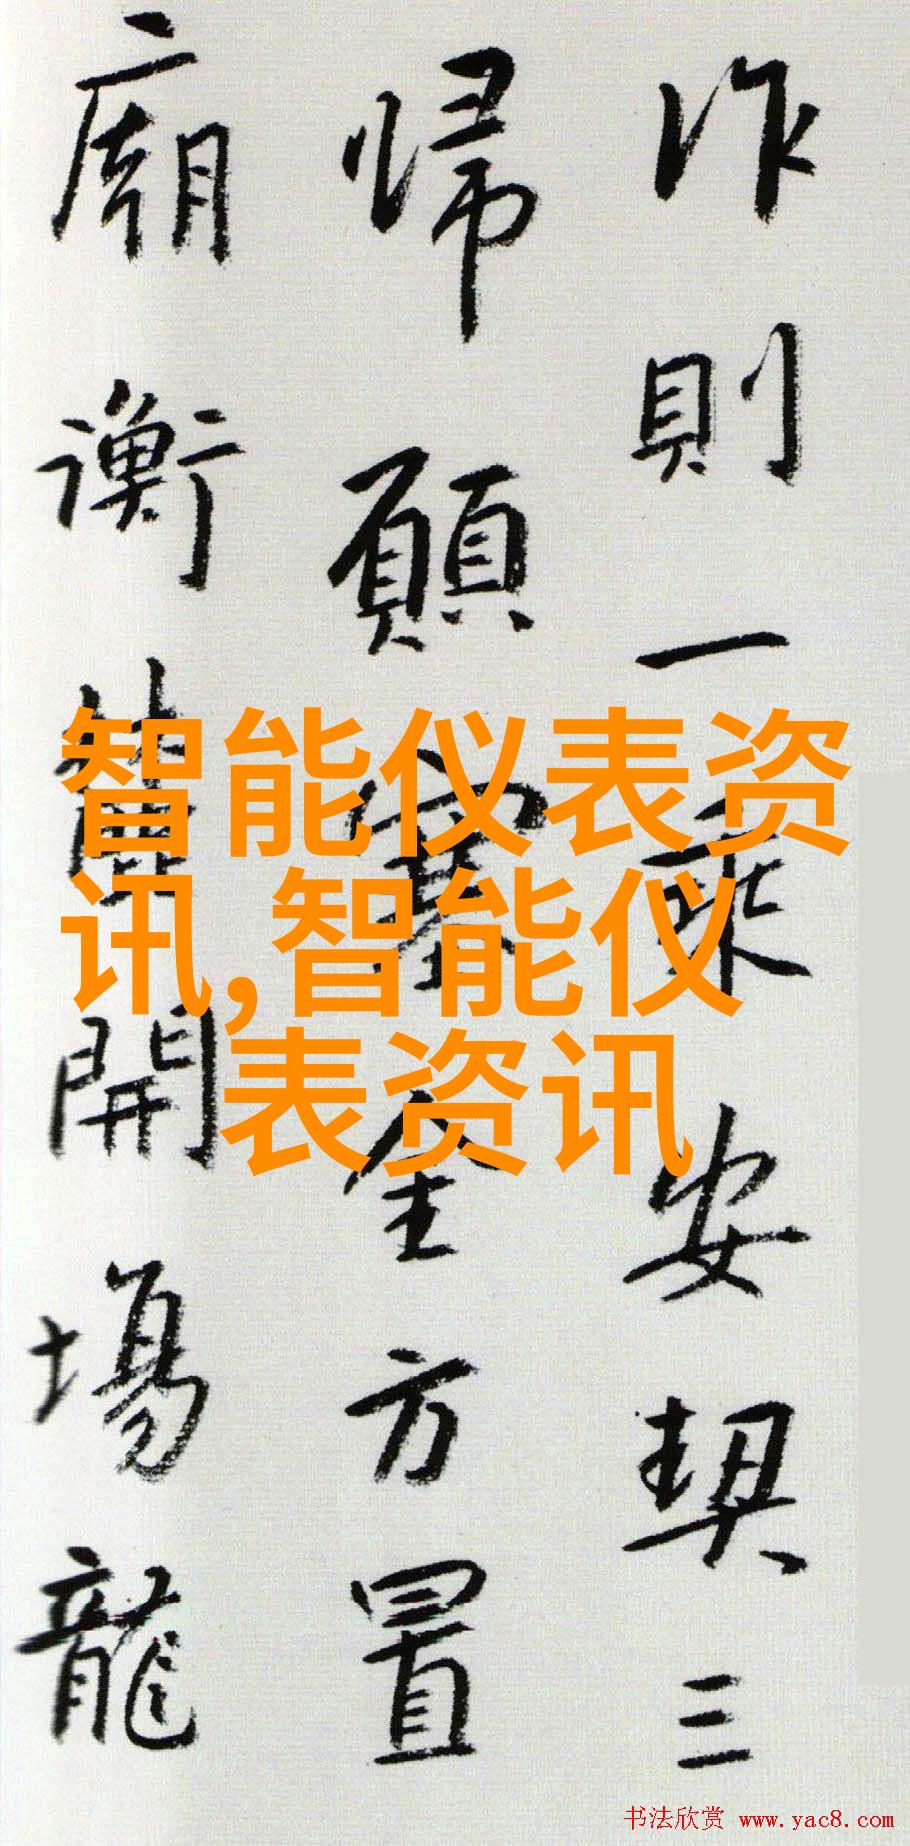 作則一乘安契三
歸願全方置
廟衡開場龍
智能仪表资
讯,智能仪
表资讯
书法欣赏 www.yac8.com